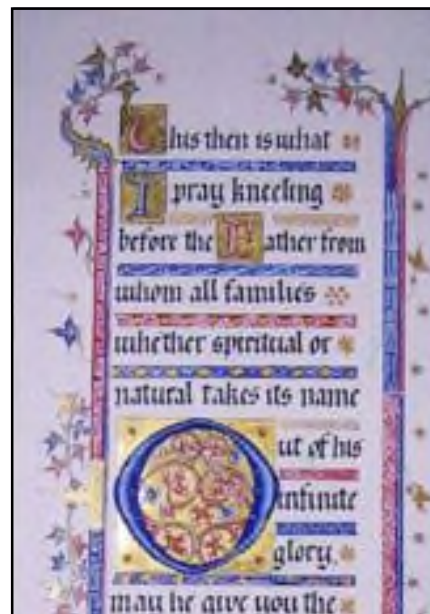 This then is what
I pray kneeling
before the Father from
whom all families
whether spiritual or
natural takes its name
Out of his
infinite
glory,
may he give you the